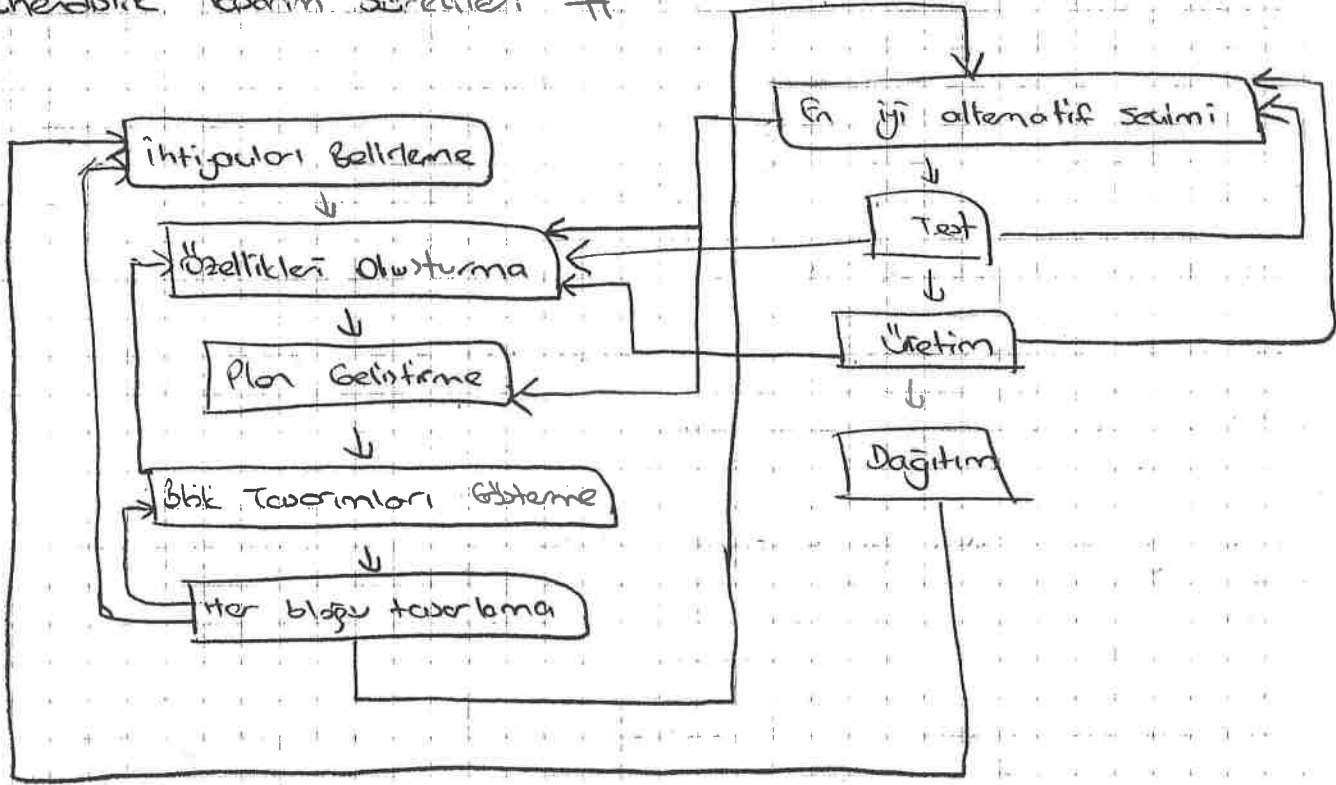 Tasarım Süreçleri
İhtiyaçları Belirleme
Özellikleri Oluşturma
Plan Geliştirme
Blok Tasarımları Gösterme
Her bloğu tasarlama
En iyi alternatif seçimi
Test
Üretim
Dağıtım